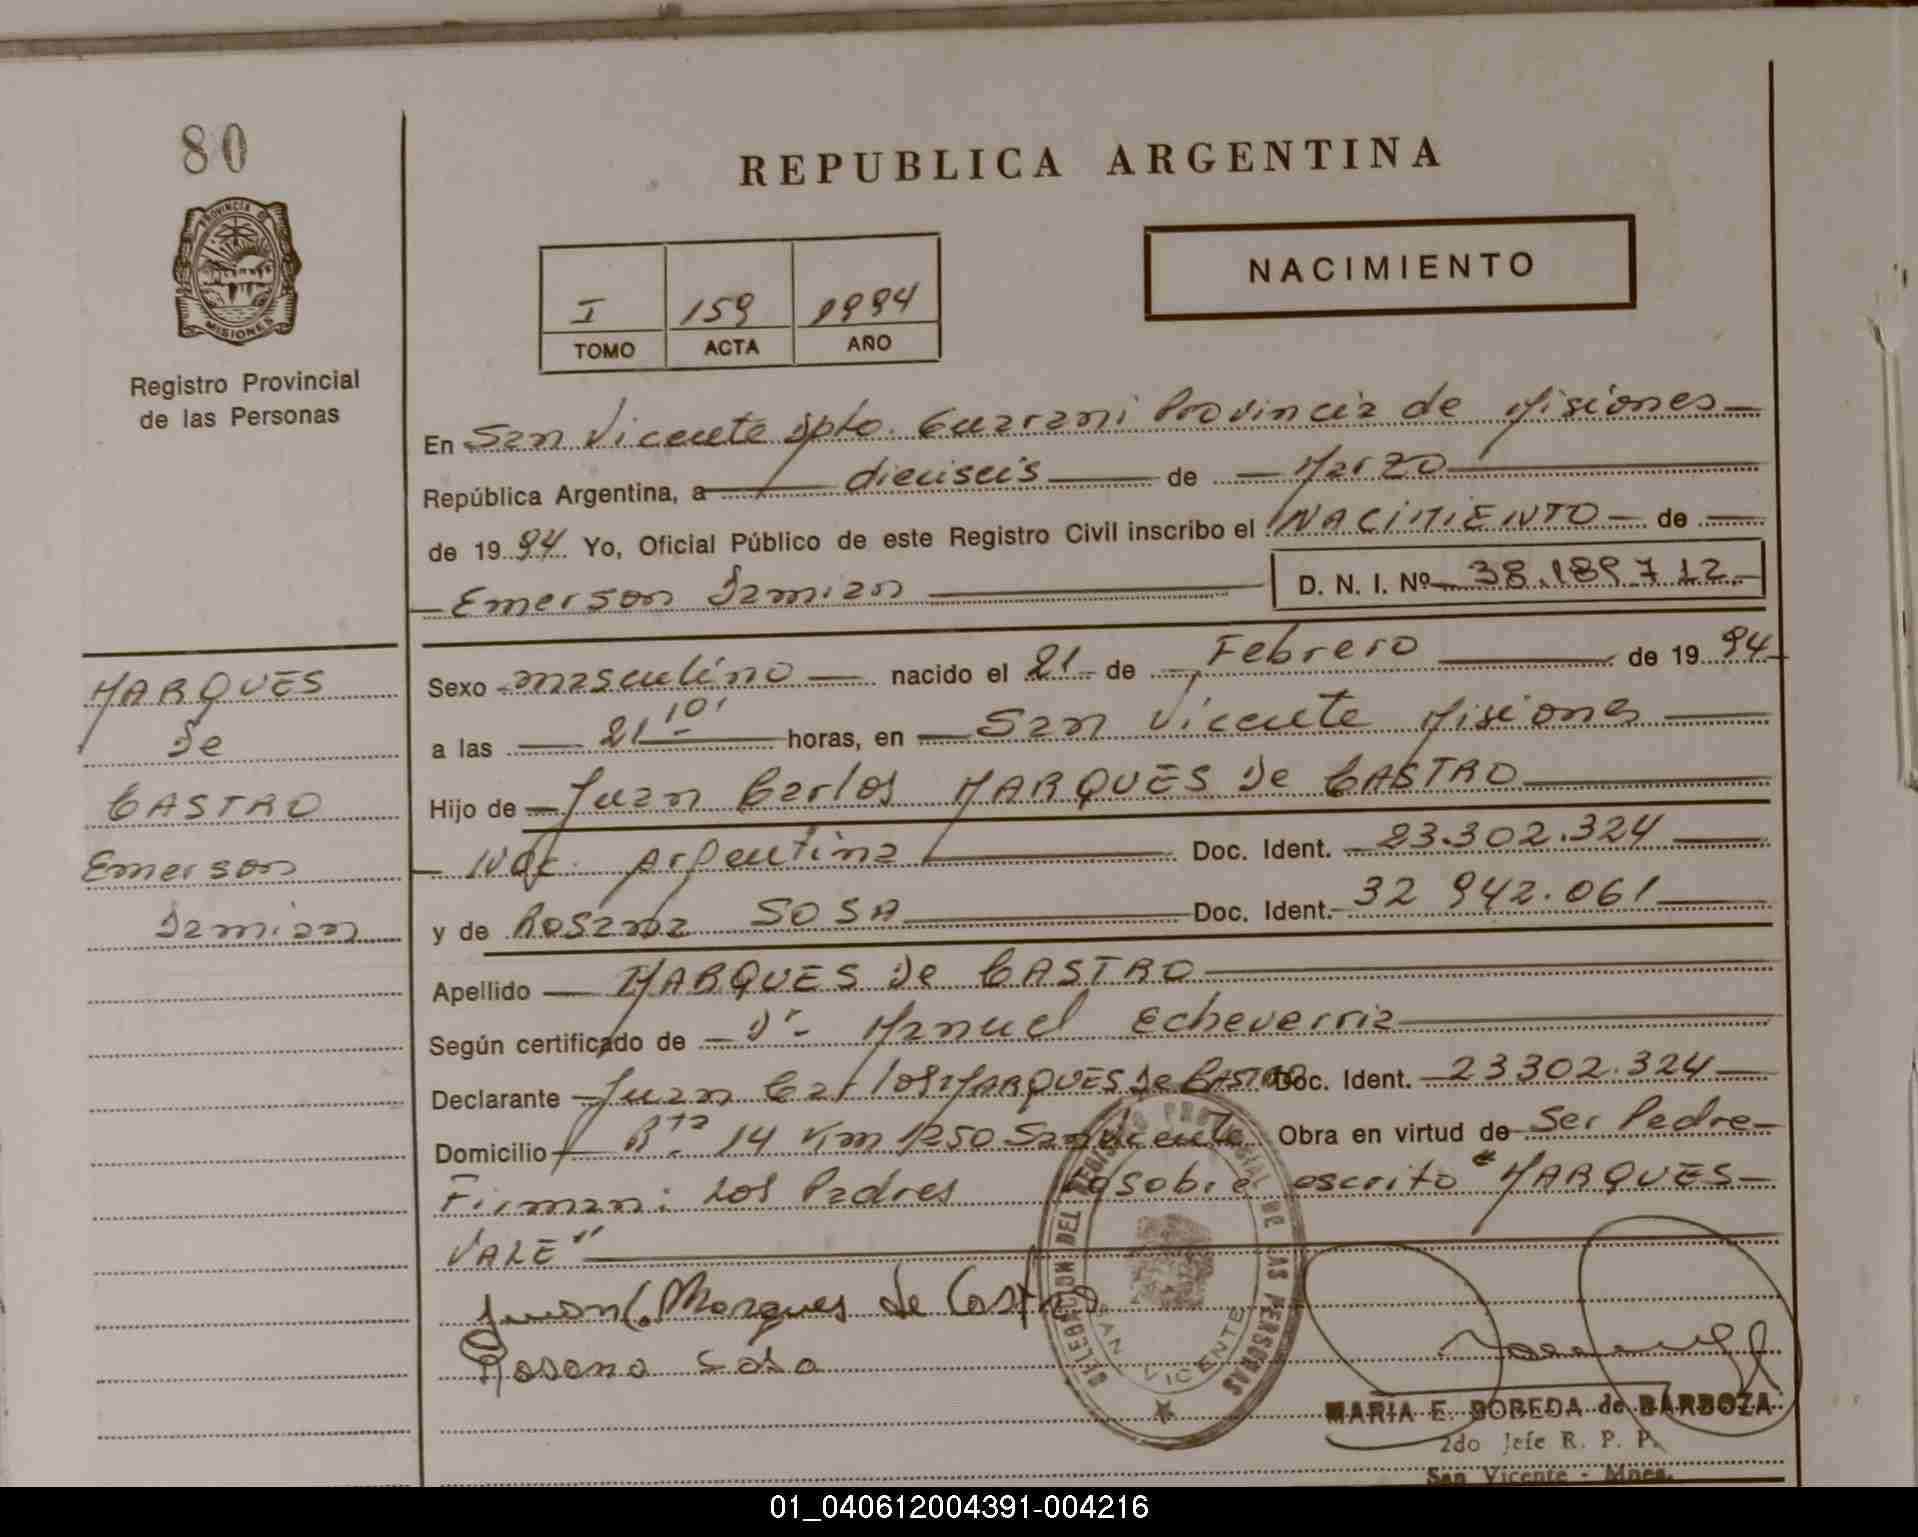 80
PROVINCIA DE
MISIONES
Registro Provincial
de las Personas
REPUBLICA ARGENTINA
NACIMIENTO
I 159 1994
TOMO ACTA AÑO
En San Vicente Dpto. Guarani Provincia de Misiones
República Argentina, a dieciseis de Marzo
de 1994 Yo, Oficial Público de este Registro Civil inscribo el NACIMIENTO de
Emerson Damian D. N. I. Nº 38.189.712
Sexo masculino nacido el 21 de Febrero de 1994
a las 21 10' horas, en San Vicente Misiones
Hijo de Juan Carlos MARQUES de CASTRO
Nac. Argentina Doc. Ident. 23.302.324
y de Rosana SOSA Doc. Ident. 32 942.061
Apellido MARQUES de CASTRO
Según certificado de Dr. Manuel Echeverria
Declarante Juan Carlos MARQUES de CASTRO Doc. Ident. 23302.324
Domicilio Rta 14 Km 1250 San Vicente Obra en virtud de Ser Padre
Firman: Los Padres sobre escrito "MARQUES
VALE"
Juan C. Marques de Castro
Rosana Sosa
MARQUES
de
CASTRO
Emerson
Damian
DELEGACION DEL REGISTRO PROVINCIAL DE LAS PERSONAS
SAN VICENTE
MARIA E. BOBEDA de BARBOZA
2do Jefe R. P. P.
San Vicente - Mnes.
01_040612004391-004216